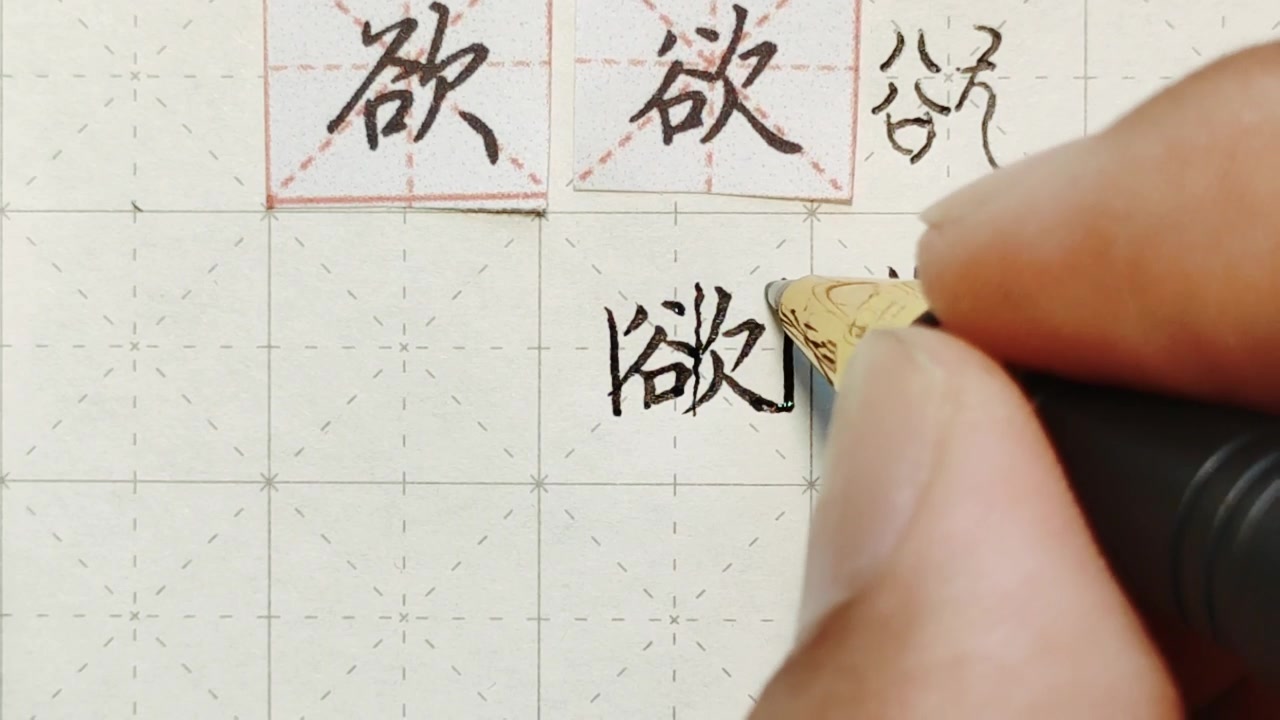 欲 欲 欲
欲